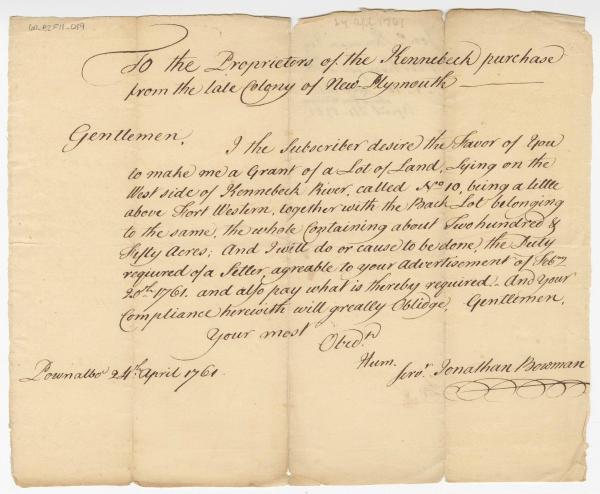 To the Proprietors of the Kennebeck purchase
from the late Colony of New-Plymouth
Gentlemen,
I the Subscriber desire the Favor of You
to make me a Grant of a Lot of Land, Lying on the
West side of Kennebeck River, called No. 10, being a little
above Fort Western, together with the Back Lot belonging
to the same, the whole Containing about Two hundred &
Fifty Acres; And I will do or cause to be done, the Duty
required of a Setler, agreable to your Advertisement of Feby
20th 1761. and also pay what is thereby required. And Your
Compliance herewith will greatly Oblidge, Gentlemen,
Your most Obedt
Hum.
Servt Jonathan Bowman
Pownalbo 24th April 1761.